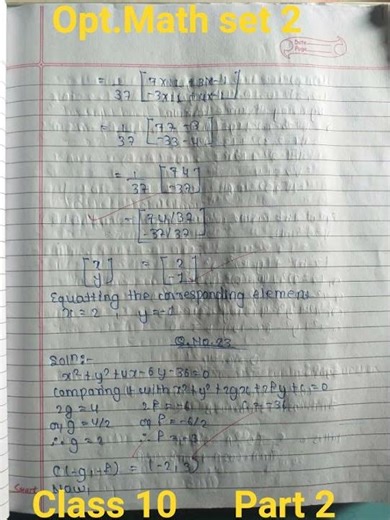 Opt.Math set 2
Date
Page
= 1/37 [7×11 + 3×-1
-3×11 + 4×-1]
= 1/37 [77 -3
-33 -4]
= 1/37 [74
-37]
= [74/37
-37/37]
[x
y] = [2
-1]
Equatting the corresponding element
x = 2 y = -1
Q.No.23
Soln:-
x²+y²+4x-6y-36=0
Comparing it with x²+y²+2gx+2fy+c=0
2g=4 2f=-6 c=-36
or, g=4/2 or f=-6/2
∴ g=2 ∴ f=-3
C(-g,-f) = (-2,3)
Now,
Smart
Class 10 Part 2